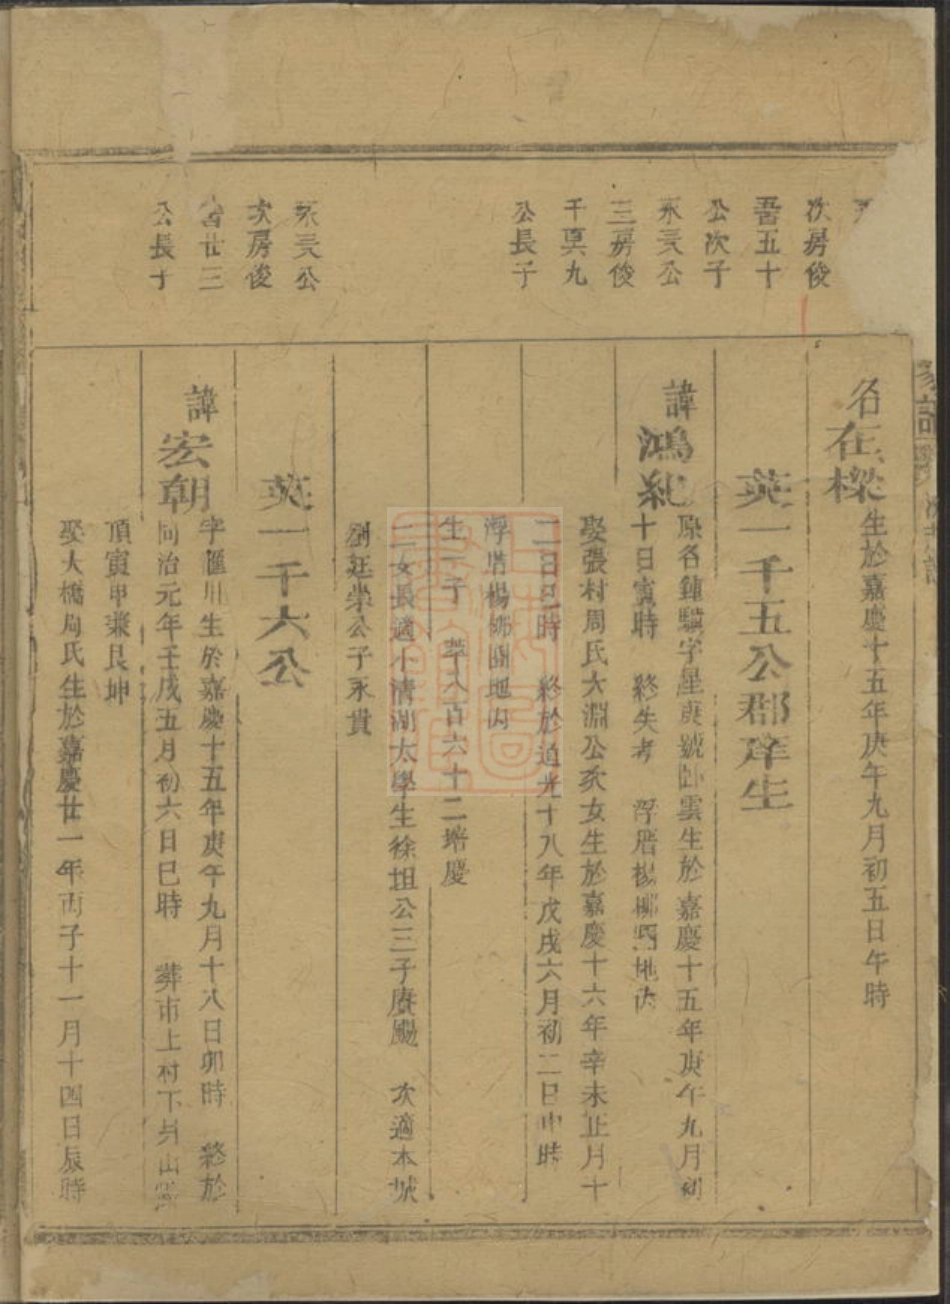 次房俊
吾五十
公次子
永支公
三房俊
千
九
公長子
永支公
次房俊
廿三
公長子
名在樑
生於嘉慶十五年庚午九月初五日午時
英一千五公郡庠生
諱鴻紀
原名鍾驥字星庚號卧雲生於嘉慶十五年庚午九月初
十日寅時 終失考 浮厝楊柳 地內
娶張村周氏大淵公次女生於嘉慶十六年辛未正月十
二日巳時 終於道光十八年戊戌六月初二日申時
浮厝楊柳 地內
生一子 萃八百六十二培慶
二女長適小清湖太學生徐坦公三子賡颺 次適本城
劉廷榮公子永貴
英一千六公
諱宏朝
字滙川生於嘉慶十五年庚午九月十八日卯時 終於
同治元年壬戌五月初六日巳時 葬市上村下 山
頂寅甲兼艮坤
娶大橋周氏生於嘉慶廿一年丙子十一月十四日辰時